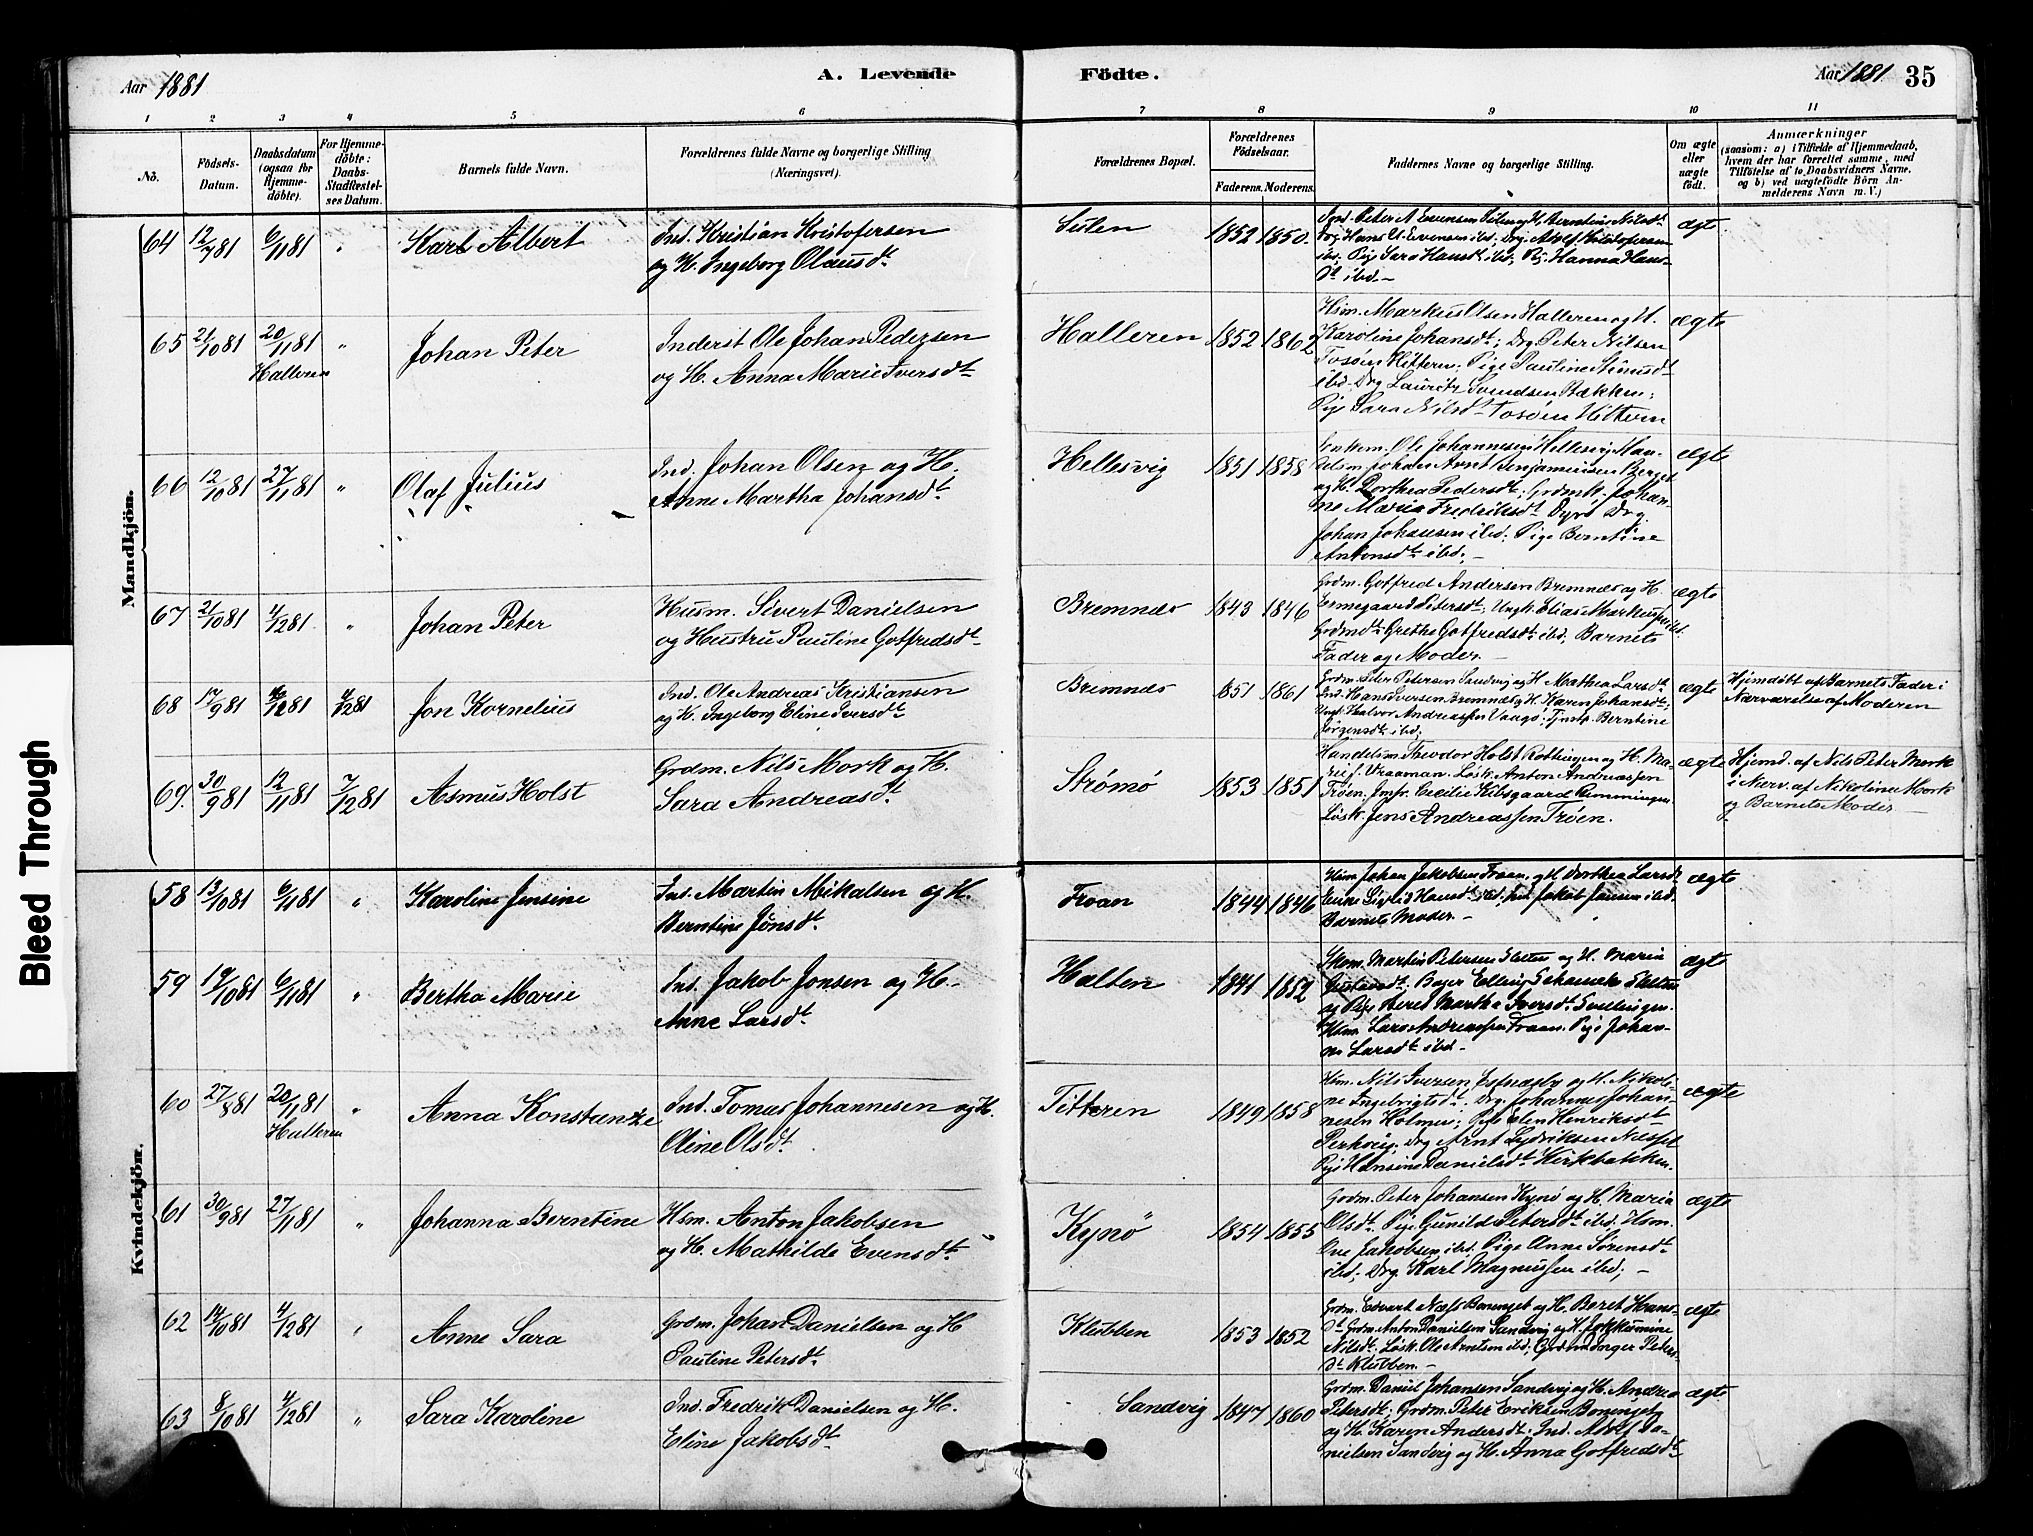 Aar 1881
A. Levende
Födte.
Aar 1881 35
1 2 3 4 5 6 7 8 9 10 11
No.
Födsels-
Datum.
Daabsdatum
(ogsaa for
Hjemme-
döbte).
For Hjemme-
döbte:
Daabs-
Stadfæstel-
ses Datum.
Barnets fulde Navn.
Forældrenes fulde Navne og borgerlige Stilling
(Næringsvei).
Forældrenes Bopæl.
Forældrenes
Födselsaar.
Faderens. Moderens.
Faddernes Navne og borgerlige Stilling.
Om ægte
eller
uægte
födt.
Anmærkninger
(saasom: a) i Tilfælde af Hjemmedaab,
hvem der har forrettet samme, med
Tilföielse af to Daabsvidners Navne,
og b) ved uægtefödte Börn An-
melderens Navn m. V.)
Mandkjön.
64 12/9 81 6/11 81 " Karl Albert
Ind. Kristian Kristofersen
og H. Ingeborg Olausdt.
Sulen 1852 1850.
Ind. Peter A Evensen Sulen og H. Berntine Nilsdt.
Evensen ibd; Drg. Adolf Kristofersen
ibd; Pige Sara Hansdt ibd; Pig. Hanna Hans-
dt ibd.-
ægte
65 21/10 81 20/11 81 " Johan Peter
Halleren
Inderst Ole Johan Pedersen
og H. Anna Marie Iversdt.
Halleren 1852 1862
Hsm. Markus Olsen Halleren og H.
Karoline Johansdt; Drg. Peter Nilsen
Tosøen Hittern; Pige Pauline
ibd. Drg Lauritz Svendsen Bækken;
Pige Sara Nilsdt Tosøen Hittern
ægte
66 12/10 81 27/11 81 " Olaf Julius
Ind. Johan Olsen og H.
Anne Martha Johansdt.
Hellesvig 1851 1858
Enkem. Ole Johannesen Hellesvig Han-
delsm. Johan Arnt Benjaminsen Berget
og H. Dorthea Pedersdt; Grdmk. Johan-
ne Marie Fredriksdt Dyrø Drg.
Johan Johansen ibd; Pige Berntine
Antonsdt ibd;-
ægte
67 21/10 81 4/12 81 " Johan Peter
Husm. Sivert Danielsen
og Hustru Pauline Gotfredsdt.
Bremnæs 1843 1846
Grdm. Gotfred Andersen Bremnæs og H.
Ermegaard Petersdt; Ungk. Elias Markussen ibd.
Grdmdt. Grethe Gotfredsdt ibd. Barnets
Fader og Moder.
ægte
68 17/9 81 81 4/12 81 Jon Kornelius
Ind. Ole Andreas Kristiansen
og H. Ingeborg Eline Iversdt.
Bremnæs 1851 1861
Grdm. Peter Petersen Sandvig og H. Mathea Larsdt.
Ind. Hans Iversen Bremnæs og H. Karen Johansdt;
Ungk. Halvor Andreassen Vaagø; Tjnstp. Berntine
Jørgensdt ibd;
ægte
Hjemdøbt af Barnets Fader i
Nærværelse af Moderen
69. 30/9 81 12/11 81 7/12 81 Asmus Holst
Grdm. Nils Mork og H.
Sara Andreasdt.
Strømø 1853 1851
Handelsm. Theodor Holst Rottingen og H. Ma-
rie f. Vraaman. Løsk. Anton Andreassen
Trøen. Jmfr. Cecilie Kibsgaard Rimmingen
Løsk. Jens Andreassen Trøen.
ægte
Hjemd. af Nils Peter Mork
i Nærv. af Nikoline Mork
og Barnets Moder
Kvindekjön.
58 13/10 81 6/11 81 " Karoline Jensine
Ind. Martin Mikalsen og H.
Berntine Jonsdt.
Froan 1844 1846
Hsm Johan Jakobsen Froan, og H. Dorthea Larsdt
Hansdt ibd; Jakob Jonsen ibd.
Barnets Moder.-
ægte
59 19/10 81 6/11 81 " Bertha Marie
Ind. Jakob Jonsen og H.
Anne Larsdt.
Halten 1841 1852
Hsm. Martin Petersen og H. Maria
Gustavsdt; Elling
og Pige Beret Martha Iversdt.
Hsm. Lars Andreassen Froan. Pige Johan-
ne Larsdt ibd-
ægte
60 27/8 81 20/11 81 " Anna Konstanze
Halleren
Ind. Tomas Johannesen og H.
Oline Olsdt.
Titteren 1849 1858
Hsm. Nils Iversen og H. Nikoli-
ne Ingebrigtsdt; Drg. Johannes Johan-
nesen Holmen; Pige Elen Henriksdt
Drg Arnt
Pige Hansine Danielsdt Kirkbakken.
ægte
61 30/9 81 27/11 81 " Johanna Berntine
Hsm. Anton Jakobsen
og H. Mathilde Evensdt.
Kynø 1854 1855
Grdm. Peter Johansen Kynø og H. Maria
Olsdt; Pige Gunild Petersdt ibd. Hsm.
Ove Jakobsen ibd. Pige Anne Sørensdt.
ibd;- Drg Karl Magnussen ibd;-
ægte
62 14/10 81 4/12 81 " Anne Sara
Grdm. Johan Danielsen og H
Pauline Petersdt.
Klubben 1853 1852
Grdm. Edvart Næss og H. Beret Hans-
dt. Grdm. Anton Danielsen Sandvig og H.
Nilsdt; Løsk. Ole Arntsen ibd; Inger Peders-
dt Klubben.-
ægte
63 8/10 81 4/12 81 " Sara Karoline
Ind. Fredrik Danielsen og H.
Eline Jakobsdt.
Sandvig 1847 1860
Grdm. Daniel Johansen Sandvig og H. Andrea
Petersdt; Grdm. Peter Eriksen
og H. Karen Andersdt; Ind. Adolf Da-
nielsen Sandvig og H. Anna Gotfredsdt.
ægte
Bleed Through